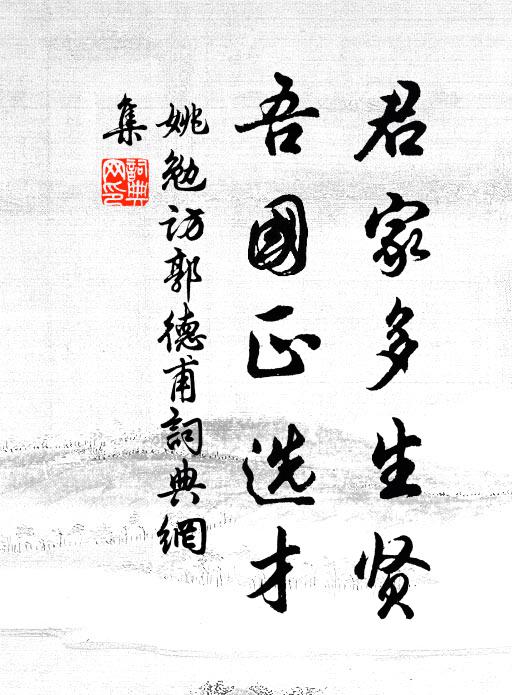 君家多生贤
吾國正选才
姚勉访郭德甫詞典網
集
詞典
网印